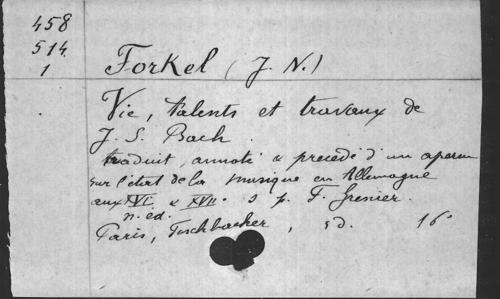 458
514
1
Forkel (J. N.)
Vie, talents et travaux de
J. S. Bach.
traduit, annoté & précédé d'un aperçu
sur l'état de la musique en Allemagne
aux XVIe & XVIIe s p. F. Grenier.
n. éd.
Paris, Fischbacher, sd. 16°